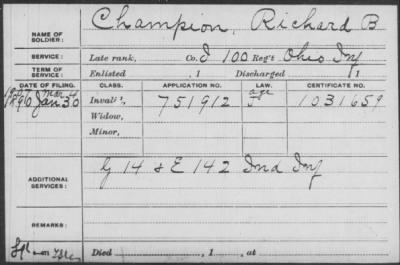 Champion, Richard B
NAME OF SOLDIER:
SERVICE: Late rank, Co. I 100 Reg't Ohio Inf
TERM OF SERVICE: Enlisted , 1 Discharged , 1
DATE OF FILING. CLASS. APPLICATION NO. LAW. CERTIFICATE NO.
Jan 30 Invalid, 751912 1031659
Widow,
Minor,
G 14 & E 142 Ind Inf
ADDITIONAL SERVICES:
REMARKS:
Died , 1 , at